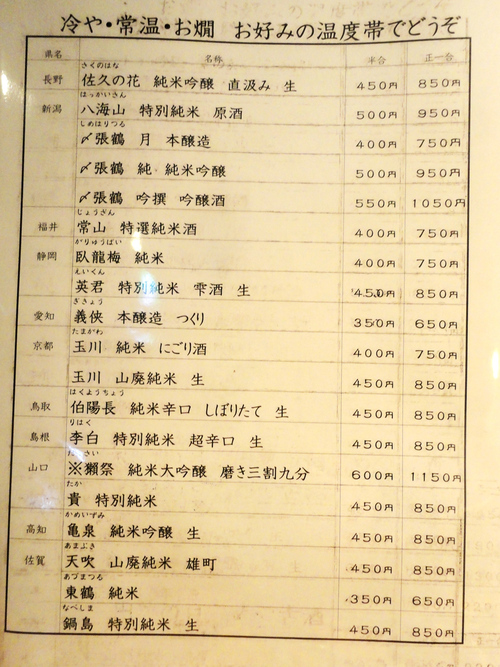 冷や・常温・お燗 お好みの温度帯でどうぞ
県名 名称 半合 正一合
さくのはな
長野 佐久の花 純米吟醸 直汲み 生 450円 850円
はっかいさん
新潟 八海山 特別純米 原酒 500円 950円
しめはりつる
〆張鶴 月 本醸造 400円 750円
〆張鶴 純 純米吟醸 500円 950円
〆張鶴 吟撰 吟醸酒 550円 1050円
じょうざん
福井 常山 特選純米酒 400円 750円
がりゅうばい
静岡 臥龍梅 純米 400円 750円
えいくん
英君 特別純米 雫酒 生 450円 850円
ぎきょう
愛知 義侠 本醸造 つくり 350円 650円
たまがわ
京都 玉川 純米 にごり酒 400円 750円
玉川 山廃純米 生 450円 850円
はくようちょう
鳥取 伯陽長 純米辛口 しぼりたて 生 450円 850円
りはく
島根 李白 特別純米 超辛口 生 450円 850円
山口 ※獺祭 純米大吟醸 磨き三割九分 600円 1150円
たか
貴 特別純米 450円 850円
かめいずみ
高知 亀泉 純米吟醸 生 450円 850円
あまぶき
佐賀 天吹 山廃純米 雄町 450円 850円
あづまつる
東鶴 純米 350円 650円
なべしま
鍋島 特別純米 生 450円 850円